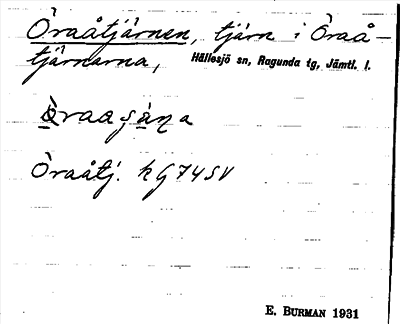 Öraåtjärnen, tjärn i Öraå-
tjärnarna, Hällesjö sn, Ragunda tg, Jämtl. l.
Öraåtj. kG74SV
E. BURMAN 1931